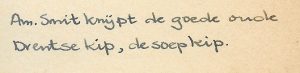 Am. Smit knijpt de goede oude
Drentse kip, de soepkip.